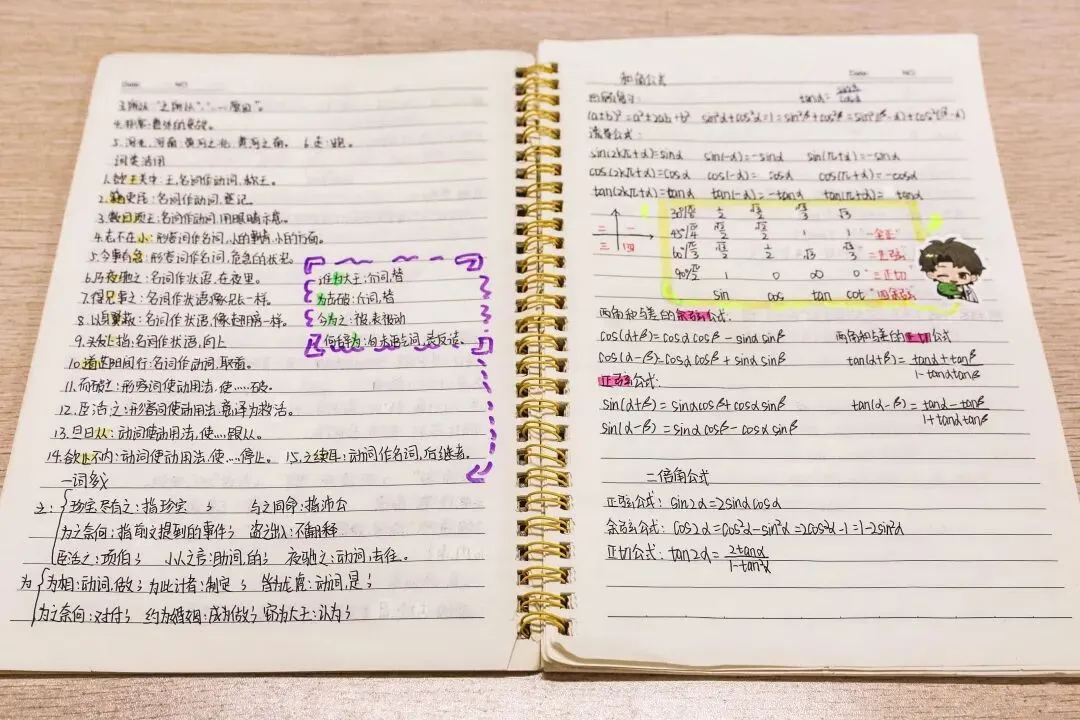 Date: NO.
3.所以 "之所以"，"……原因"。
4.非常:意外的变故。
5.河北,河南:黄河之北,黄河之南。 6.走:跑。
词类活用
1.欲王关中:王,名词作动词,称王。
2.籍吏民:名词作动词,登记。
3.数目项王:名词作动词,用眼睛示意。
4.志不在小:形容词作名词,小的事情,小的方面。
5.今事有急:形容词作名词,危急的状况。
6.乃夜驰之:名词作状语,在夜里。
7.得兄事之:名词作状语,像兄长一样。
8.以身翼蔽:名词作状语,像翅膀一样。
9.头发上指:名词作状语,向上
10.道芷阳间行:名词作动词,取道。
11.而破之:形容词使动用法,使……破。
12.臣活之:形容词使动用法,意译为救活。
13.旦日从:动词使动用法,使…跟从。
14.欲止不内:动词使动用法,使…停止。 15.之续耳:动词作名词,后继者。
谁为大王:介词,替
为击破:介词,替
今为之:被,表被动
何辞为:句末语气词,表反诘。
一词多义
之: 珍宝尽有之:指珍宝 ; 与之同命:指沛公
为之奈何:指前文提到的事件; 盗之出入:不翻译
臣活之:项伯; 小人之言:助词,的; 夜驰之:动词,去往。
为 为相:动词,做; 为此计者:制定 ; 皆为龙虎:动词,是;
为之奈何:对付; 约为婚姻:成为做; 窃为大王:认为;
Date: NO.
和角公式
tanα=sinα/cosα
(a+b)²=a²+2ab+b² sin²α+cos²α=1=sin²β+cos²β=sin²(β-α)+cos²(β-α)
诱导公式:
sin(2kπ+α)=sinα sin(-α)=-sinα sin(π+α)=-sinα
cos(2kπ+α)=cosα cos(-α)= cosα cos(π+α)=-cosα
tan(2kπ+α)=tanα tan(-α)=-tanα tan(π+α)= tanα
二 一
三 四
30°/π/6 1/2 √3/2 √3/3 √3
45°/π/4 √2/2 √2/2 1 1 一全正
60°/π/3 √3/2 1/2 √3 √3/3 二正弦
90°/π/2 1 0 ∞ 0 三正切
sin cos tan cot 四余弦
两角和与差的余弦公式:
cos(α+β)=cosαcosβ-sinαsinβ 两角和与差的正切公式
cos(α-β)=cosαcosβ+sinαsinβ tan(α+β)=tanα+tanβ/1-tanαtanβ
正弦公式:
sin(α+β)=sinαcosβ+cosαsinβ tan(α-β)=tanα-tanβ/1+tanαtanβ
sin(α-β)=sinαcosβ-cosαsinβ
二倍角公式
正弦公式: sin2α=2sinαcosα
余弦公式: cos2α=cos²α-sin²α=2cos²α-1=1-2sin²α
正切公式: tan2α=2tanα/1-tan²α